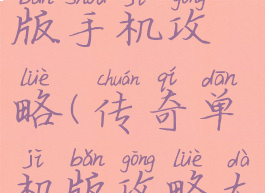 bǎn shǒu jī gōng
版手机攻
lüè chuán qí dān
略(传奇单
jī bǎn gōng lüè dà
机版攻略大